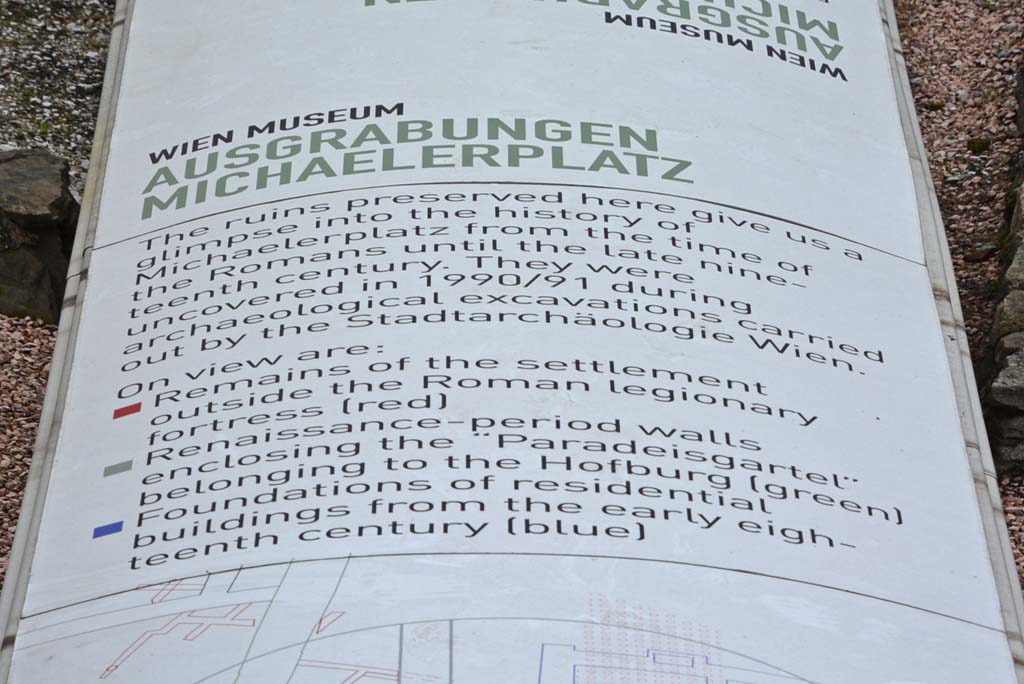 WIEN MUSEUM
AUSGRABUNGEN
MICHAELERPLATZ
The ruins preserved here give us a
glimpse into the history of
Michaelerplatz from the time of
the Romans until the late nine-
teenth century. They were
uncovered in 1990/91 during
archaeological excavations carried
out by the Stadtarchäologie Wien.
On view are:
Remains of the settlement
outside the Roman legionary
fortress (red)
Renaissance-period walls
enclosing the "Paradeisgartel"
belonging to the Hofburg (green)
Foundations of residential
buildings from the early eigh-
teenth century (blue)
WIEN MUSEUM